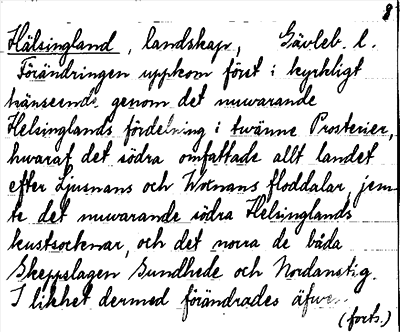 8
Hälsingland, landskap, Gävleb. l.
Förändringen uppkom först i kyrkligt
hänseende genom det nuvarande
Helsinglands fördelning i twänne Prosterier,
hwaraf det södra omfattade allt landet
efter Ljusnans och Woxnans floddalar, jem-
te det nuwarande södra Helsinglands
kustsocknar, och det norra de båda
Skeppslagen Sundhede och Nordanstig.
I likhet dermed förändrades äfwen
(forts.)